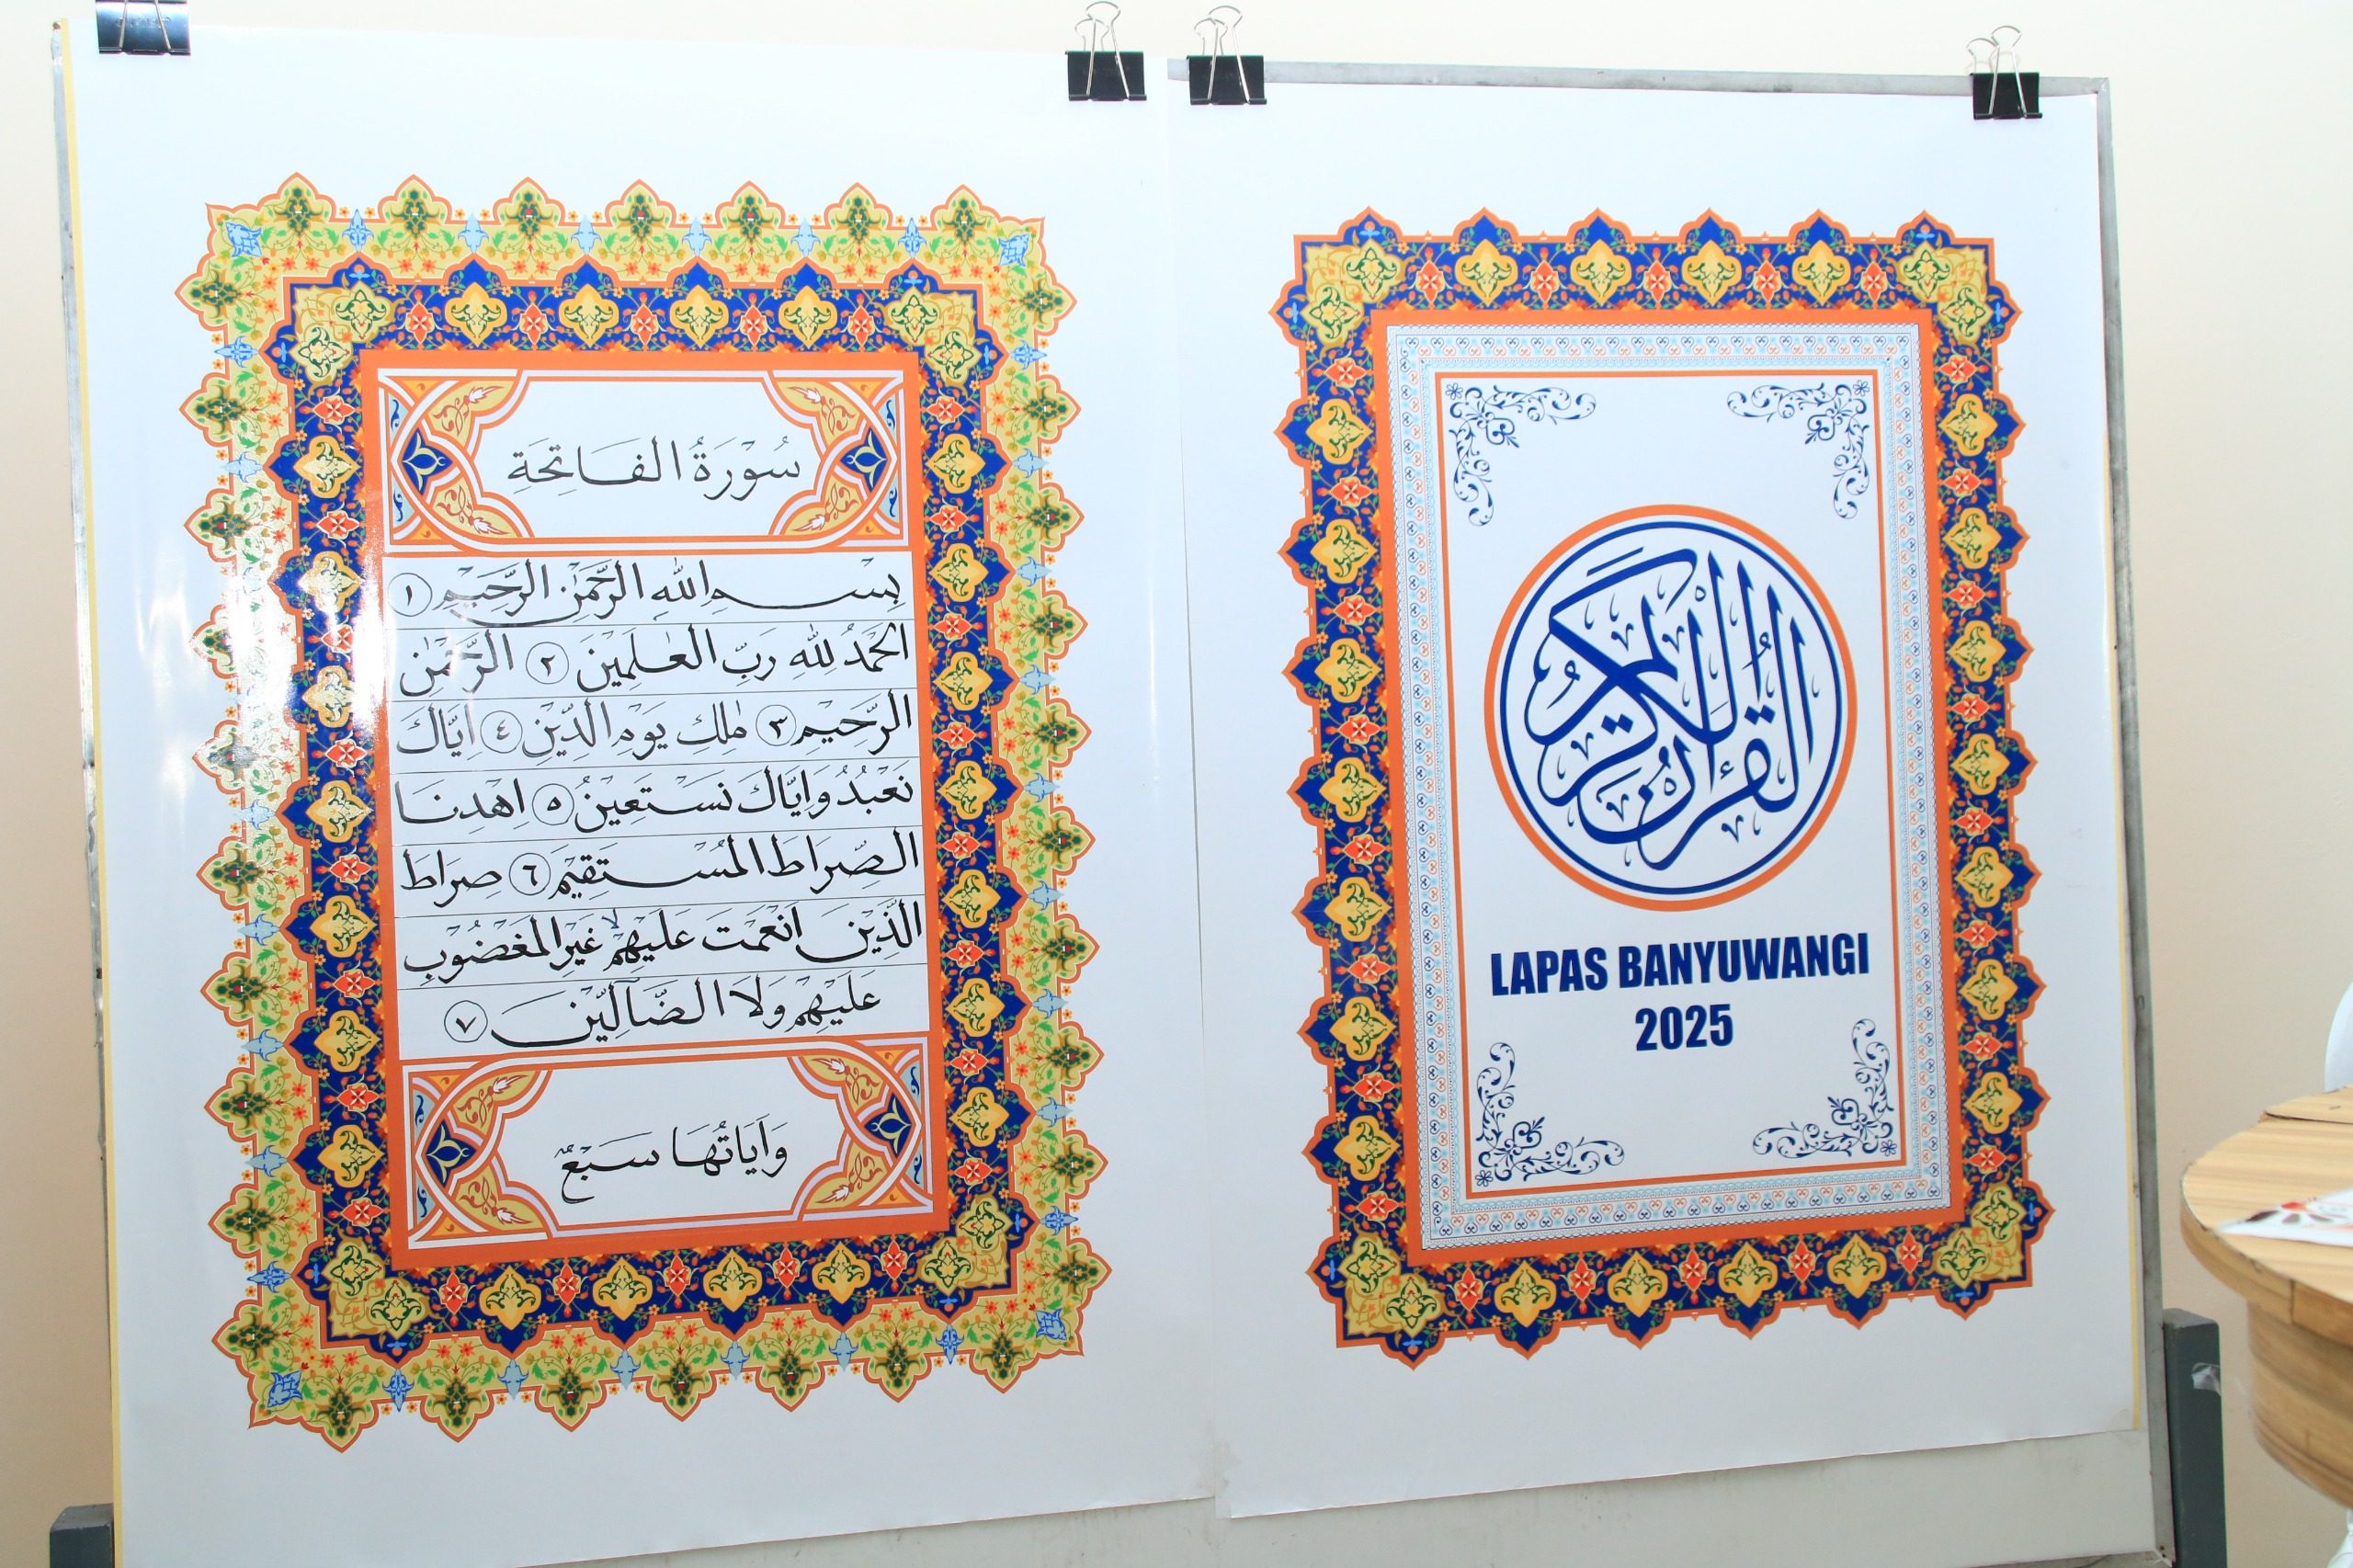 سُوْرَةُ الْفَاتِحَةِ
بِسْمِ اللهِ الرَّحْمٰنِ الرَّحِيْمِ ١
اَلْحَمْدُ لِلّٰهِ رَبِّ الْعٰلَمِيْنَ ٢ الرَّحْمٰنِ
الرَّحِيْمِ ٣ مٰلِكِ يَوْمِ الدِّيْنِ ٤ اِيَّاكَ
نَعْبُدُ وَاِيَّاكَ نَسْتَعِيْنُ ٥ اِهْدِنَا
الصِّرَاطَ الْمُسْتَقِيْمَ ٦ صِرَاطَ
الَّذِيْنَ اَنْعَمْتَ عَلَيْهِمْ ۙ غَيْرِ الْمَغْضُوْبِ
عَلَيْهِمْ وَلَا الضَّآلِّيْنَ ٧
وَاٰيَاتُهَا سَبْعٌ
القُرْآنُ الْكَرِيْمُ
LAPAS BANYUWANGI
2025